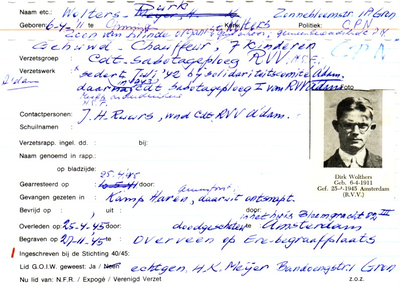 Naam etc.: Wolters - Dirk Zinnebloemstr Gron
Geboren 6-4- te Wolters Politiek C.P.N.
C.P.N.
Gehuwd Chauffeur, 7 kinderen
Verzetsgroep Cdt. Sabotageploeg RVV
Verzetswerk sedert Juli '42 bij solidariteitscomité A'dam.
daarna cdt Sabotageploeg I van RVV A'dam
Foto
Contactpersonen: J.H. Ruurs, wnd Cdt. RVV A'dam.
Schuilnaam :
Verzetsrapp. ingel. dd. : bij:
Naam genoemd in rapp:
op bladzijde:
25.4.45
Gearresteerd op door:
Gevangen gezeten in: Kamp Haren, daaruit ontsnapt.
Bevrijd op : uit : door: in het huis Bloemgracht 82 III
Overleden op 25-4-45 te: doodgeschoten Amsterdam
Begraven op 27-11-45 te : Overveen op Ere-begraafplaats
Ingeschreven bij de Stichting 40/45:
Lid G.O.I.W. geweest: Ja / Neen echtgen. H.K. Meijer Bandoengstr. Gron
Nu lid van: N.F.R. / Expogé / Verenigd Verzet z.o.z.
Dirk Wolthers
Geb. 6-4-1911
Gef. 25-4-1945 Amsterdam
(R.V.V.)